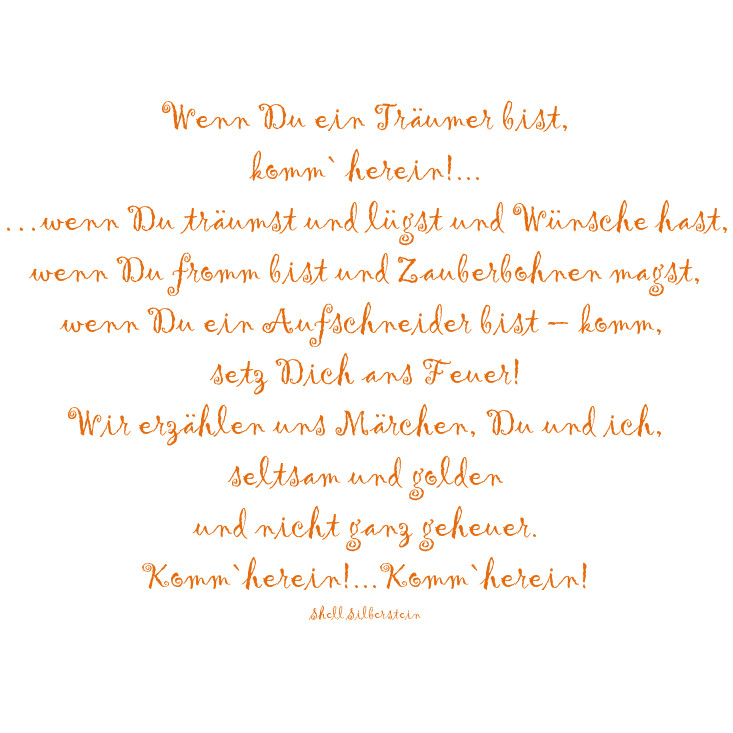 Wenn Du ein Träumer bist,
komm` herein!...
...wenn Du träumst und lügst und Wünsche hast,
wenn Du fromm bist und Zauberbohnen magst,
wenn Du ein Aufschneider bist – komm,
setz Dich ans Feuer!
Wir erzählen uns Märchen, Du und ich,
seltsam und golden
und nicht ganz geheuer.
Komm`herein!...Komm`herein!
Shell Silberstein